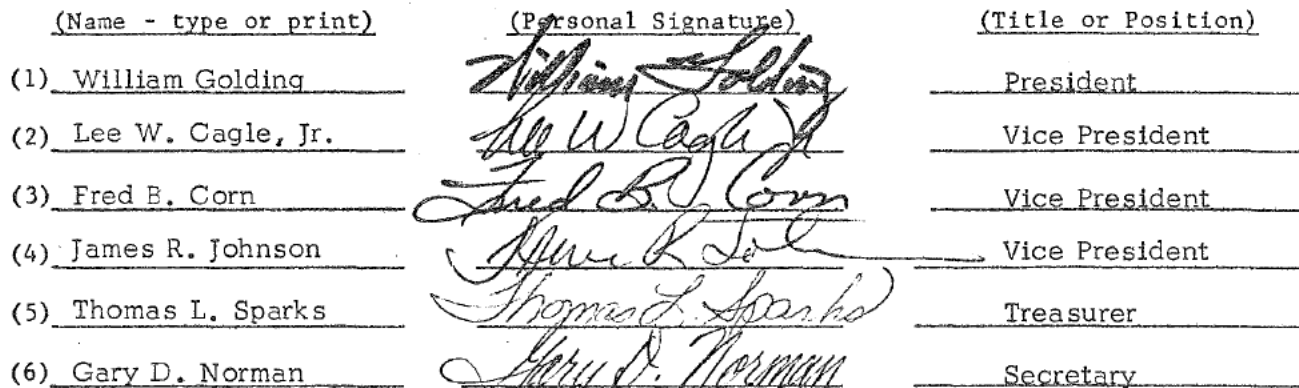 (Name - type or print) (Personal Signature) (Title or Position)
(1) William Golding William Golding President
(2) Lee W. Cagle, Jr. Lee W Cagle Jr Vice President
(3) Fred B. Corn Fred B. Corn Vice President
(4) James R. Johnson James R Vice President
(5) Thomas L. Sparks Thomas L. Sparks Treasurer
(6) Gary D. Norman Gary D. Norman Secretary